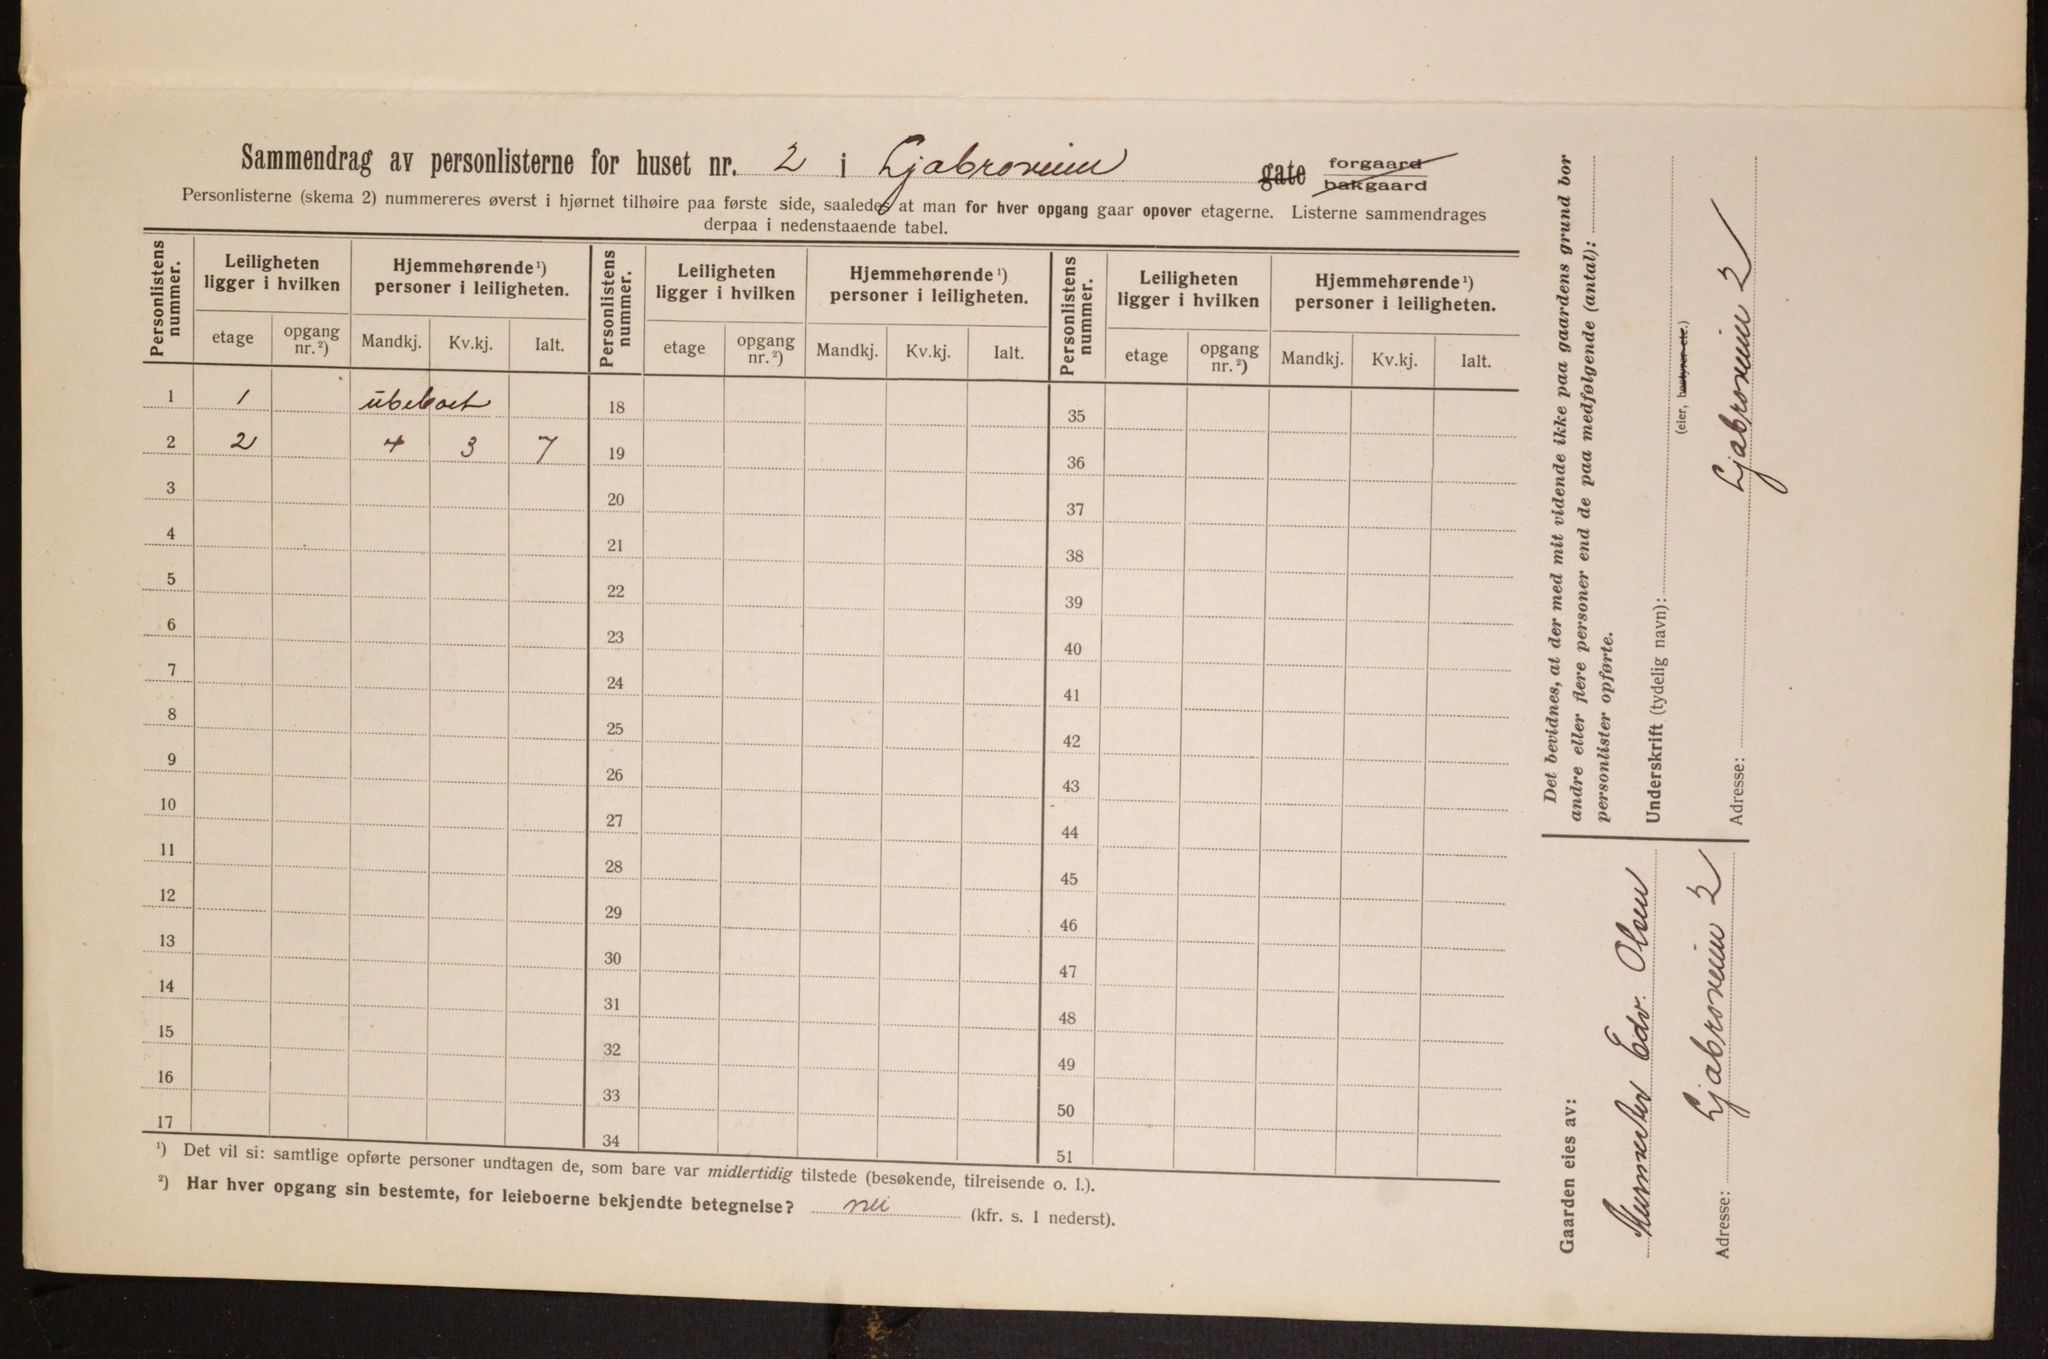 Sammendrag av personlisterne for huset nr. 2 i Ljabroveien gate forgaard bakgaard
Personlisterne (skema 2) nummereres øverst i hjørnet tilhøire paa første side, saaledes at man for hver opgang gaar opover etagerne. Listerne sammendrages
derpaa i nedenstaaende tabel.
Personlistens nummer. Leiligheten ligger i hvilken Hjemmehørende ¹) personer i leiligheten. Personlistens nummer. Leiligheten ligger i hvilken Hjemmehørende ¹) personer i leiligheten. Personlistens nummer. Leiligheten ligger i hvilken Hjemmehørende ¹) personer i leiligheten.
etage opgang nr. ²) Mandkj. Kv.kj. Ialt. etage opgang nr. ²) Mandkj. Kv.kj. Ialt. etage opgang nr. ²) Mandkj. Kv.kj. Ialt.
1 1 ubeboet 18 35
2 2 4 3 7 19 36
3 20 37
4 21 38
5 22 39
6 23 40
7 24 41
8 25 42
9 26 43
10 27 44
11 28 45
12 29 46
13 30 47
14 31 48
15 32 49
16 33 50
17 34 51
¹) Det vil si: samtlige opførte personer undtagen de, som bare var midlertidig tilstede (besøkende, tilreisende o. l.).
²) Har hver opgang sin bestemte, for leieboerne bekjendte betegnelse? nei (kfr. s. 1 nederst).
Det bevidnes, at der med mit vidende ikke paa gaardens grund bor
andre eller flere personer end de paa medfølgende (antal):
personlister opførte.
Underskrift (tydelig navn):
(eier, bestyrer etc.)
Adresse: Ljabroveien 2
Gaarden eies av:
Murmester Edv. Olsen
Adresse: Ljabroveien 2